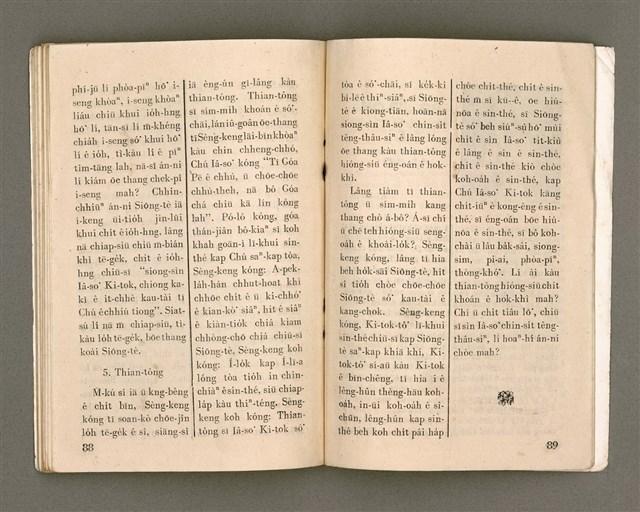 phí-jū lí phòa-piⁿ hō͘ i-
seng khòaⁿ, i-seng khòaⁿ
liáu chiū khui io̍h-hng
hō͘ lí, tàn-sī lí m̄-khéng
chiah i-seng só͘ khui hō͘
lí ê io̍h, tì-kàu lí ê pīⁿ
tìm-tāng lah, nā-sī án-ni
lí kiám ōe thang chek-pī
i-seng mah? Chhin-
chhiūⁿ án-ni Siōng-tè iā
i-keng ūi-tio̍h jîn-lūi
khui chi̍t ê io̍h-hng, lâng
nā chiap-siū chiū m̄-bián
khì tē-ge̍k, chit ê io̍h-
hng chiū-sī "siong-sìn
Iā-so͘ Ki-tok, chiong ka-
kī ê it-chhè kau-tài tī
Chú ê chhiú tiong". Siat-
sú lí nā m̄ chiap-siū, tì-
kàu lo̍h tē-ge̍k, bōe thang
koài Siōng-tè.
5. Thian-tông
M̄-kú sī iā ū kng-bêng
ê chi̍t bīn, Sèng-keng
kóng tī soan-kò chōe-jîn
lo̍h tē-ge̍k ê sî, siāng-sî
88
iā èng-ún gī-lâng kàu
thian-tông. Thian-tông
sī sím-mi̍h khoán ê só͘-
chāi, lán iû-goân ōe-thang
tī Sèng-keng lāi-bīn khòaⁿ
kàu chin chheng-chhó,
Chú Iā-so͘ kóng "Tī Góa
Pē ê chhù, ū chōe-chōe
chhù-theh, nā bô Góa
chá chiū kā lín kóng
lah". Pó-lô kóng, góa
thán-jiân bô-kiaⁿ sī koh
khah goān-ì lī-khui sin-
thé kap Chú saⁿ-kap tòa,
Sèng-keng kóng: A-pek-
la̍h-hán chhut-hoat khì
chhōe chi̍t ê ū ki-chhó͘
ê kian-kò͘ siâⁿ, hit ê siâⁿ
ê kiàn-tio̍k chiá kiam
chhòng-chō chiá chiū-sī
Siōng-tè, Sèng-keng koh
kóng: Í-lo̍k kap Í-lī-a
lóng tòa tio̍h in chin-
chiàⁿ ê sin-thé, siū chiap-
la̍p kàu thiⁿ-téng. Sèng-
keng koh kóng: Thian-
tông sī Iā-so͘ Ki-tok só͘
tòa ê só͘-chāi, sī ke̍k-kî
bí-lē ê thiⁿ-siâⁿ, sī Siōng-
tè ê kiong-tiān, hoān-nā
siong-sìn Iā-so͘ chin-si̍t
têng-thâu-siⁿ ê lâng lóng
ōe thang kàu thian-tông
hióng-siū éng-oán ê hok-
khì.
Lâng tiàm tī thian-
tông ū sím-mi̍h kang
thang chò á-bô? Á-sī chí
ū chē teh hióng-siū seng-
oa̍h ê khoài-lo̍k? Sèng-
keng kóng, lâng tī hia
beh ho̍k-sāi Siōng-tè, hit
sî tio̍h chòe chōe-chōe
Siōng-tè só͘ kau-tài ê
kang-chok. Sèng-keng
kóng, Ki-tok-tô͘ lī-khui
sin-thé chiū-sī kap Siōng-
tè saⁿ-kap khiā khí, Ki-
tok-tô͘ sí-aū kàu Ki-tok
ê bīn-chêng, tī hia i ê
lêng-hûn thêng-hāu koh-
oa̍h, in-ūi koh-oa̍h ê sî-
chūn, lêng-hûn kap sin-
thé beh koh chi̍t pái ha̍p
chòe chi̍t-thé, chit ê sin-
thé m̄ sī kū--ê, ōe hiú-
nōa ê sin-thé, sī Siōng-
tè só͘ beh siúⁿ-sù hō͘ múi
chi̍t ê sìn Iā-so͘ tit-kiù
ê lâng ê sin ê sin-thé,
chit ê sin-thé kiò chòe
koh-oa̍h ê sin-thé, kap
Chú Iā-so͘ Ki-tok kāng
chi̍t-iūⁿ ê kong-êng ê sin-
thé, sī éng-oán bōe hiú-
nōa ê sin-thé, sī bô koh-
chài ū lâu ba̍k-sái, siong-
sim, pi-ai, phòa-pīⁿ,
thòng-khó͘. Lí ài kàu
thian-tông hióng-siū chit
khoán ê hok-khì mah?
Chí ū chi̍t tiâu lō͘, chiū
sī sìn Iā-so͘ chin-si̍t têng-
thâu-siⁿ, lí hoaⁿ-hí án-ni
chòe mah?
89